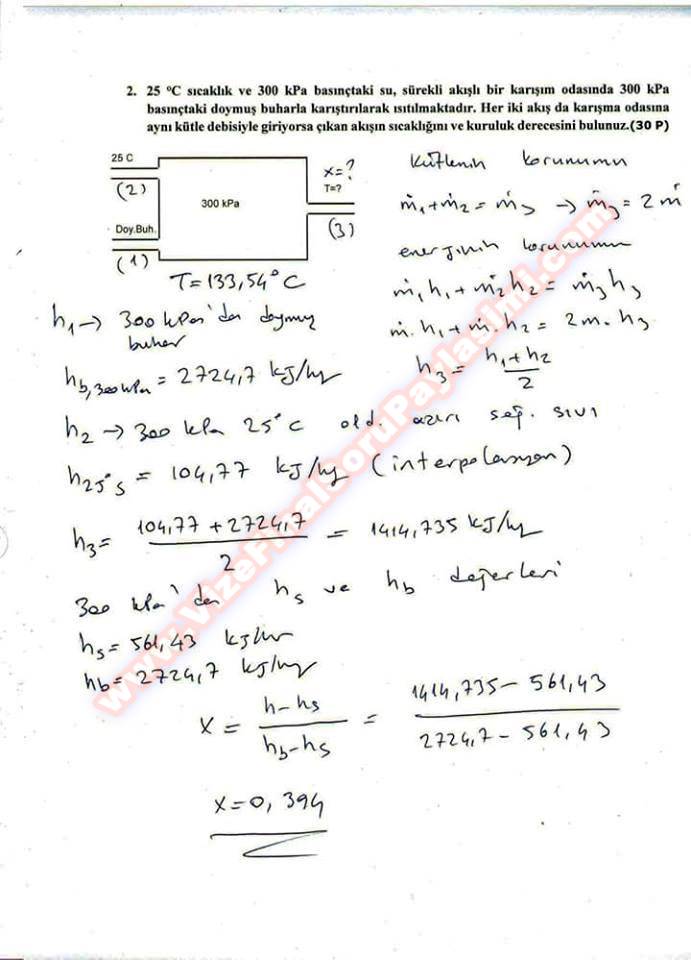 2. 25 ºC sıcaklık ve 300 kPa basınçtaki su, sürekli akışlı bir karışım odasında 300 kPa
basınçtaki doymuş buharla karıştırılarak ısıtılmaktadır. Her iki akış da karışma odasına
aynı kütle debisiyle giriyorsa çıkan akışın sıcaklığını ve kuruluk derecesini bulunuz.(30 P)
25 C
(2)
300 kPa
x=?
T=?
(3)
Doy.Buh.
(1)
T=133,54°C
Kütlenin korunumu
ṁ₁+ṁ₂=ṁ₃ → ṁ₃=2ṁ
enerjinin korunumu
ṁ₁h₁+ṁ₂h₂=ṁ₃h₃
ṁ.h₁+ṁ.h₂=2ṁ.h₃
h₃=(h₁+h₂)/2
h₁→ 300 kPa'da doymuş
buhar
hb,300kPa=2724,7 kJ/kg
h₂→ 300 kPa 25°C old. aşırı soğ. sıvı
h25°s = 104,77 kJ/kg (interpolasyon)
h₃= (104,77+2724,7)/2 = 1414,735 kJ/kg
300 kPa'da hs ve hb değerleri
hs=561,43 kJ/kg
hb=2724,7 kJ/kg
x = (h-hs)/(hb-hs) = (1414,735-561,43)/(2724,7-561,43)
x=0,394
www.VizeFinalSoruPaylasimi.com